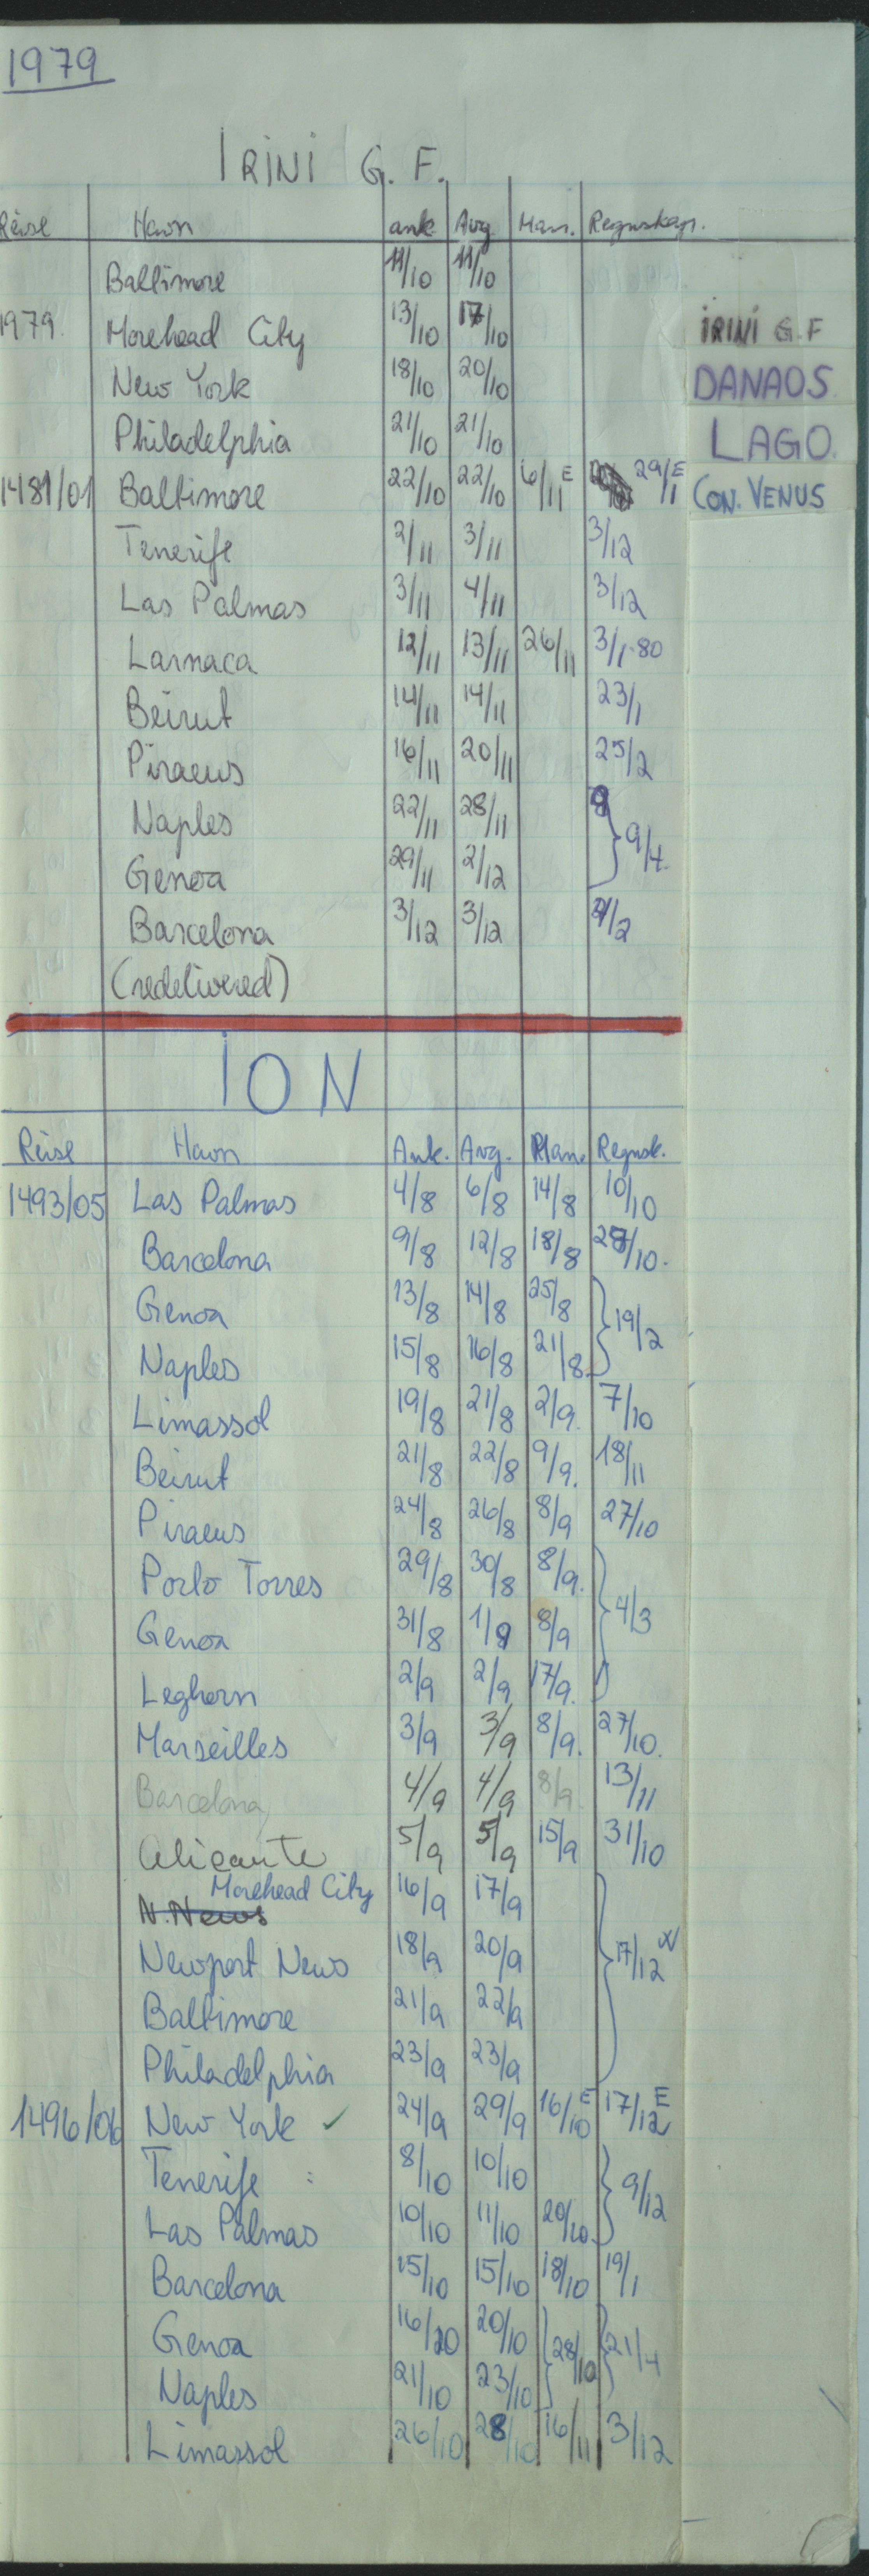 1979
IRINI G. F.
Reise Havn ank. Avg Man. Regnskap.
Baltimore 11/10 11/10
1979. Morehead City 13/10 17/10
IRINI G.F
New York 18/10 20/10
DANAOS
Philadelphia 21/10 21/10
LAGO.
1481/01 Baltimore 22/10 22/10 6/11 E 29/1 E
CON. VENUS
Tenerife 2/11 3/11 3/12
Las Palmas 3/11 4/11 3/12
Larnaca 12/11 13/11 26/11 3/1-80
Beirut 14/11 14/11 23/1
Piraeus 16/11 20/11 25/2
Naples 22/11 28/11
9/4.
Genoa 29/11 2/12
Barcelona 3/12 3/12
(redelivered)
ION
Reise Havn Ank. Avg. Man. Regnsk.
1493/05 Las Palmas 4/8 6/8 14/8 10/10
Barcelona 9/8 12/8 18/8
Genoa 13/8 14/8 25/8
19/2
Naples 15/8 16/8 21/8.
Limassol 19/8 21/8 2/9. 7/10
Beirut 21/8 22/8 9/9. 18/11
Piraeus 24/8 26/8 8/9 27/10
Porto Torres 29/8 30/8 8/9.
4/3
Genoa 31/8 1/9 8/9
Leghorn 2/9 2/9 17/9.
Marseilles 3/9 3/9 8/9. 27/10.
Barcelona 4/9 4/9 8/9. 13/11
Alicante 5/9 5/9 15/9 31/10
Morehead City 16/9 17/9
N. News
Newport News 18/9 20/9 17/12 W
Baltimore 21/9 22/9
Philadelphia 23/9 23/9
1496/06 New York ✓ 24/9 29/9 16/10 E 17/12 E
Tenerife : 8/10 10/10
9/12
Las Palmas 10/10 11/10 20/10.
Barcelona 15/10 15/10 18/10 19/1
Genoa 16/10 20/10
28/10 21/4
Naples 21/10 23/10
Limassol 26/10 28/10 16/11 3/12